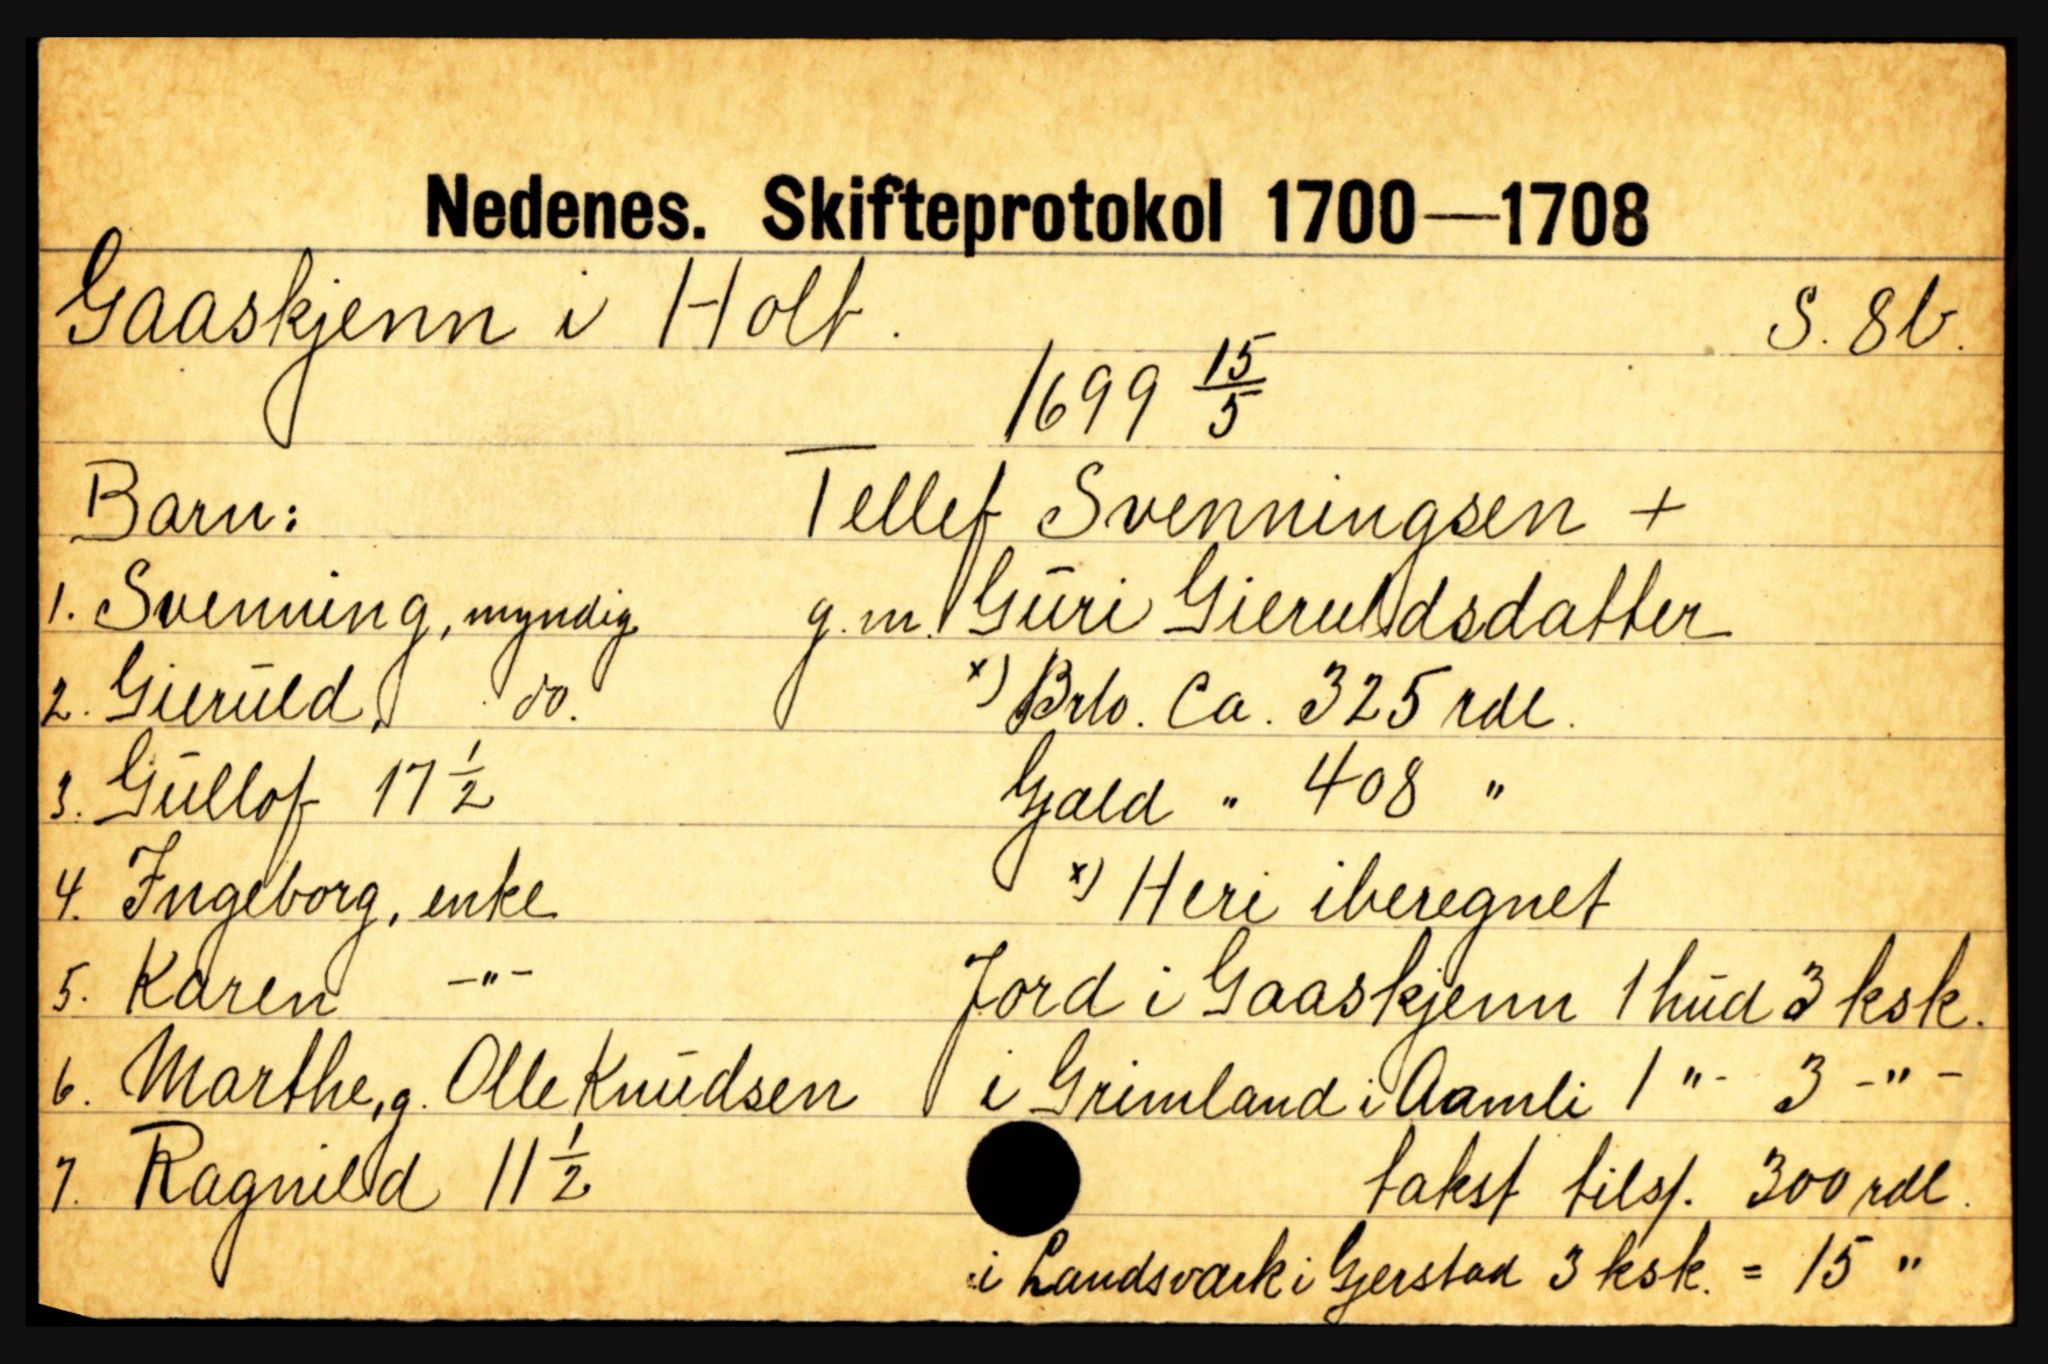 Nedenes. Skifteprotokol 1700—1708
Gaaskjenn i Holt. S. 8b.
1699 15/5
Barn: Tellef Svenningsen +
1. Svenning, myndig g. m. Guri Gieruldsdatter
2. Gieruld, do. x) Brto. Ca. 325 rdl.
3. Gullof 17 1/2 Gjæld " 408 "
4. Ingeborg, enke x) Heri iberegnet
5. Karen -"- Jord i Gaaskjenn 1 hud 3 ksk.
6. Marthe, g. Olle Knudsen i Grimland i Aamli 1 "- 3 -"-
7. Ragnild 11 1/2 takst tils. 300 rdl.
i Landsværk i Gjerstad 3 ksk. = 15 "